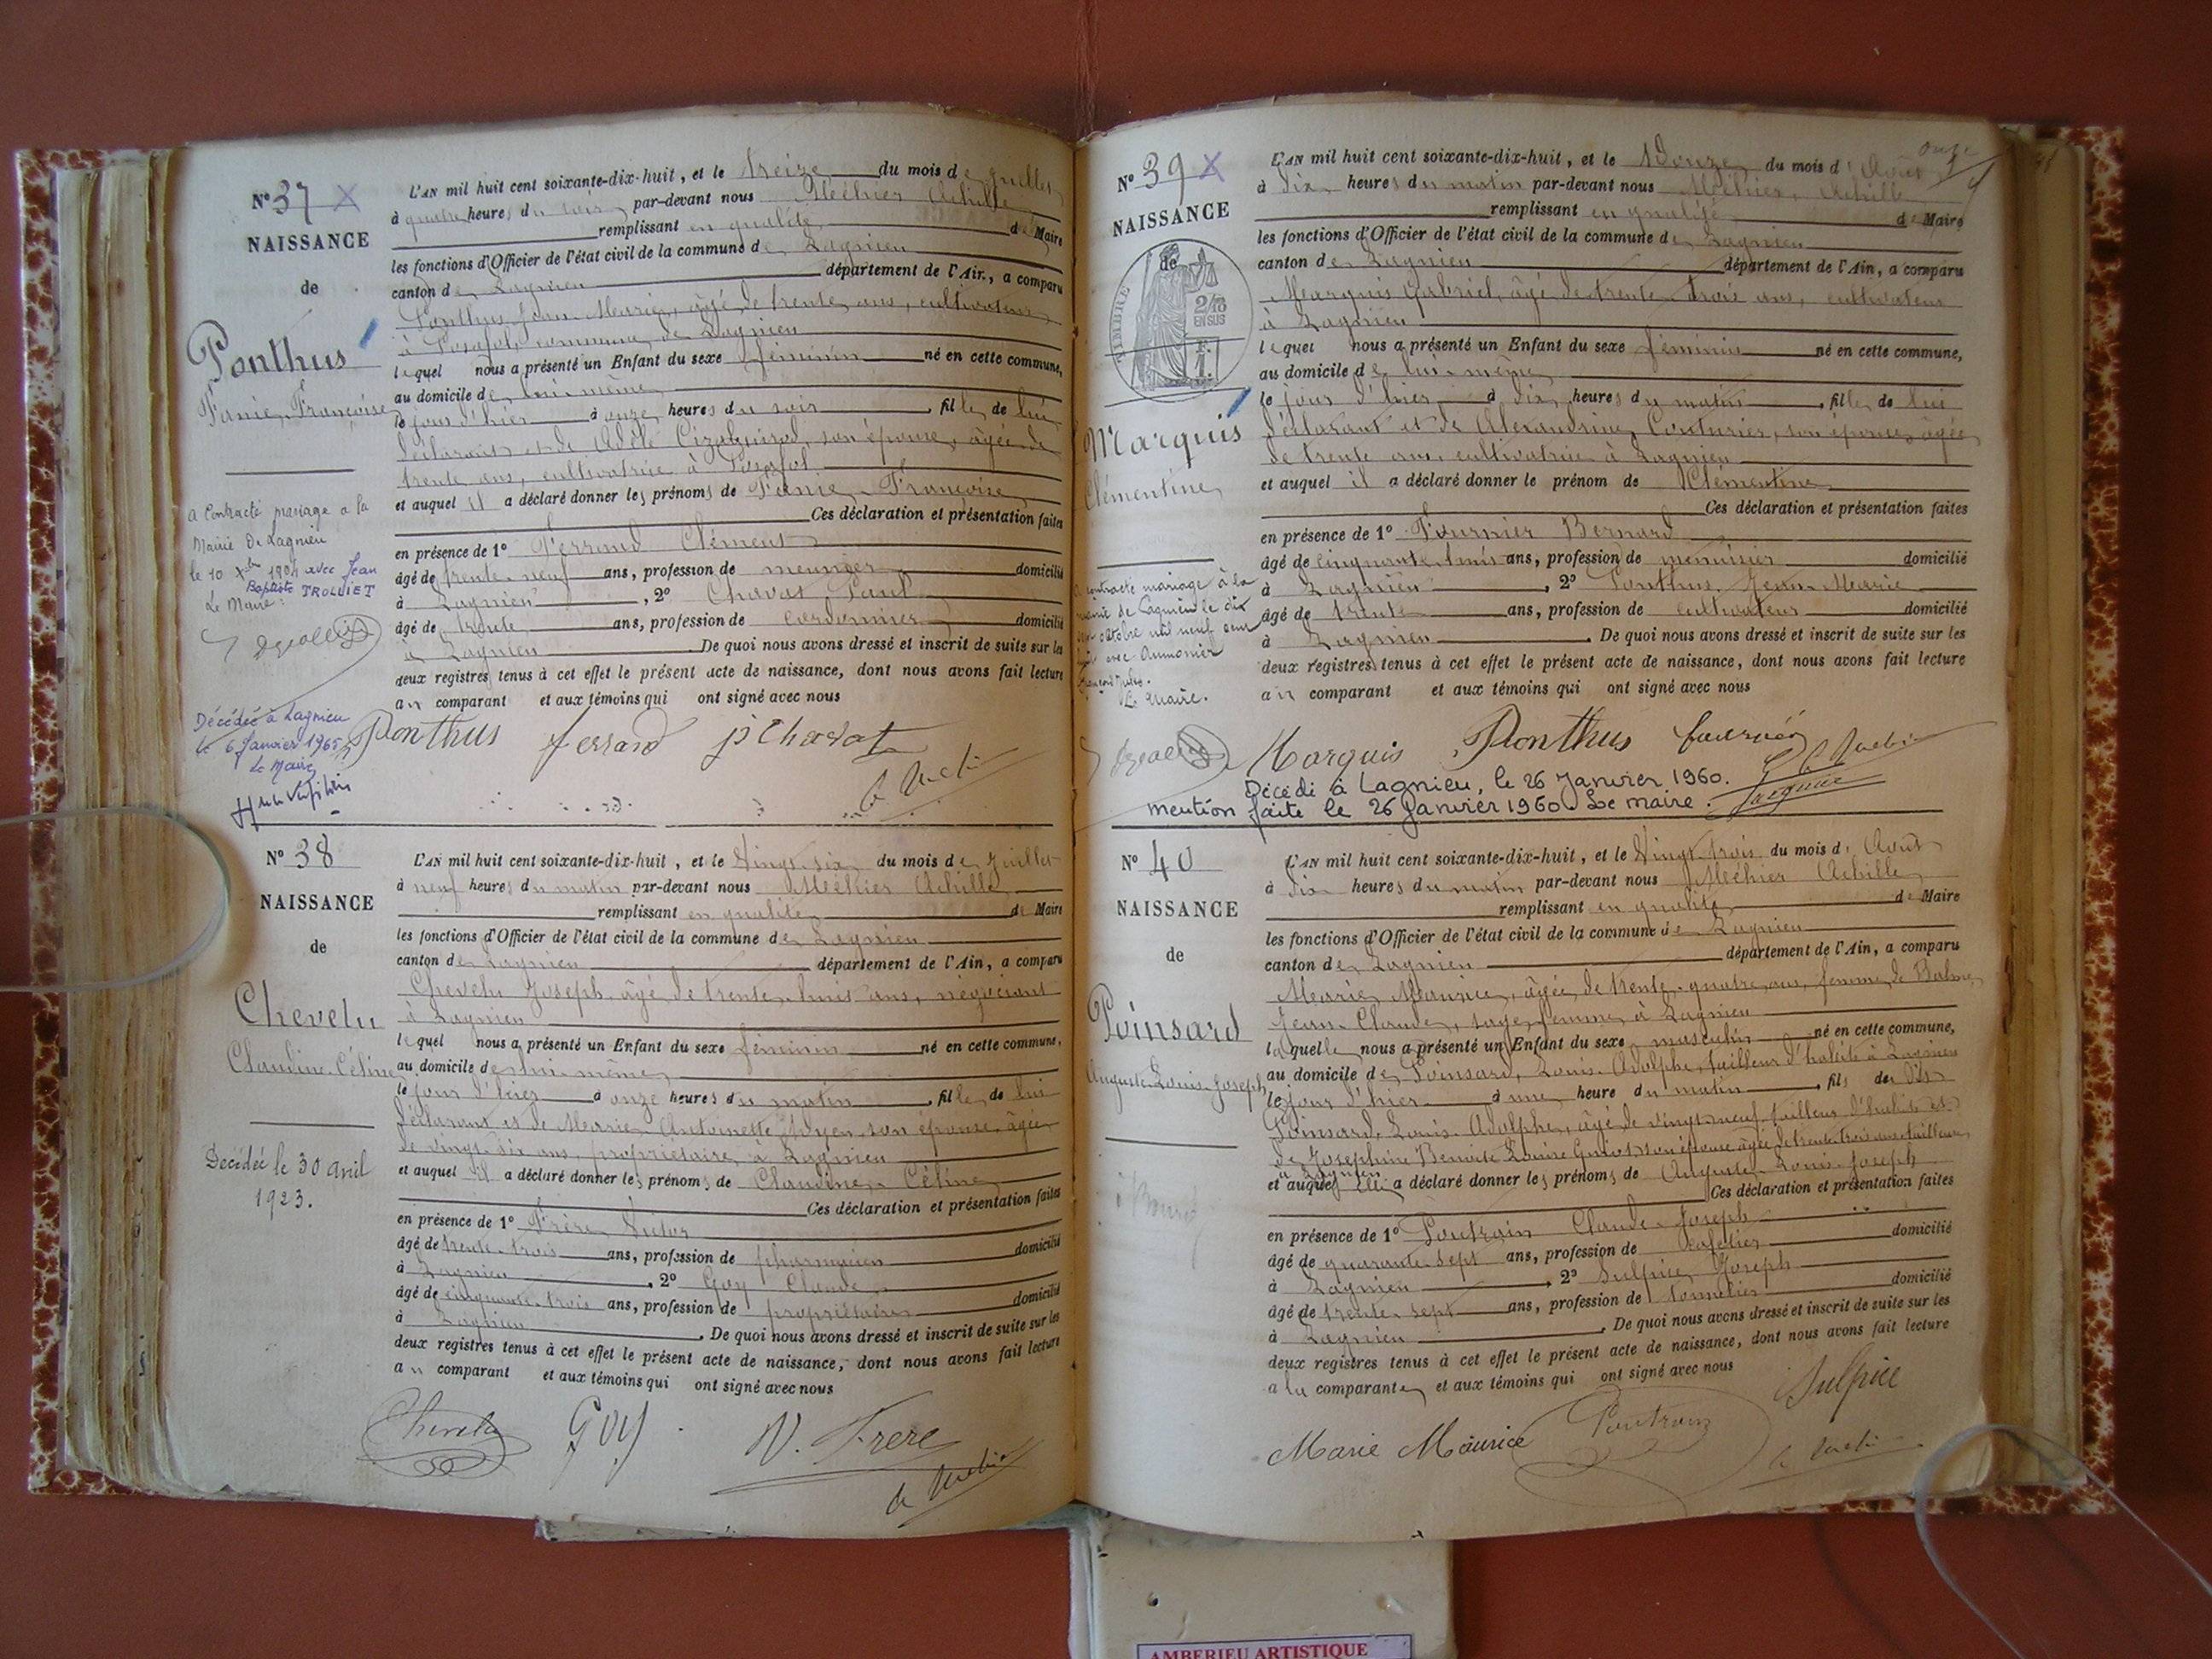 N° 37 X
NAISSANCE
de
Ponthus
Fanie Françoise
a Contracté mariage a la
Mairie De Lagnieu
le 10 Xbre 1904 avec Jean
Baptiste TROLLIET
Le Maire:
Décédée à Lagnieu
le 6 Janvier 1965
Le Maire
L'AN mil huit cent soixante-dix-huit, et le treize du mois de juillet
à quatre heures du soir par-devant nous Méhier Achille
remplissant en qualité de Maire
les fonctions d'Officier de l'état civil de la commune de Lagnieu
canton de Lagnieu département de l'Ain, a comparu
Ponthus Jean-Marie, âgé de trente ans, cultivateur
à Posafol commune de Lagnieu
lequel nous a présenté un Enfant du sexe féminin né en cette commune,
au domicile de lui-même
le jour d'hier à onze heures du soir, fille de lui
déclarant et de Adèle son épouse, âgée de
trente ans, cultivatrice à Posafol
et auquel il a déclaré donner les prénoms de Fanie Françoise
Ces déclaration et présentation faites
en présence de 1° Ferrand Clément
âgé de trente-neuf ans, profession de meunier domicilié
à Lagnieu, 2° Chavat Paul
âgé de trente ans, profession de cordonnier domicilié
à Lagnieu. De quoi nous avons dressé et inscrit de suite sur les
deux registres tenus à cet effet le présent acte de naissance, dont nous avons fait lecture
au comparant et aux témoins qui ont signé avec nous
Ponthus ferrand p Chavat
N° 38
NAISSANCE
de
Chevelu
Claudine-Céline
Décédée le 30 avril
1923.
L'AN mil huit cent soixante-dix-huit, et le Vingt-six du mois de Juillet
à neuf heures du matin par-devant nous Méhier Achille
remplissant en qualité de Maire
les fonctions d'Officier de l'état civil de la commune de Lagnieu
canton de Lagnieu département de l'Ain, a comparu
Chevelu Joseph, âgé de trente-huit ans, négociant
à Lagnieu
lequel nous a présenté un Enfant du sexe féminin né en cette commune,
au domicile de lui-même
le jour d'hier à onze heures du matin, fille de lui
déclarant et de Marie Antoinette son épouse, âgée
de vingt-six ans, propriétaire à Lagnieu
et auquel il a déclaré donner les prénoms de Claudine-Céline
Ces déclaration et présentation faites
en présence de 1° Frère Victor
âgé de trente-trois ans, profession de pharmacien domicilié
à Lagnieu, 2° Goy Claude
âgé de cinquante-trois ans, profession de propriétaire domicilié
à Lagnieu. De quoi nous avons dressé et inscrit de suite sur les
deux registres tenus à cet effet le présent acte de naissance, dont nous avons fait lecture
au comparant et aux témoins qui ont signé avec nous
Chevelu Goy V. Frere
N° 39 X
NAISSANCE
de
TIMBRE
2/10
EN SUS
Marquis
Clémentine
contracté mariage à la
mairie de Lagnieu le dix
octobre mil neuf cent
avec Aumonier
Le Maire.
L'AN mil huit cent soixante-dix-huit, et le Douze du mois d'Août
onze
à dix heures du matin par-devant nous Méhier, Achille
remplissant en qualité de Maire
les fonctions d'Officier de l'état civil de la commune de Lagnieu
canton de Lagnieu département de l'Ain, a comparu
Marquis Gabriel, âgé de trente-trois ans, cultivateur
à Lagnieu
lequel nous a présenté un Enfant du sexe féminin né en cette commune,
au domicile de lui-même
le jour d'hier à dix heures du matin, fille de lui
déclarant et de Alexandrine Couturier, son épouse, âgée
de trente ans, cultivatrice à Lagnieu
et auquel il a déclaré donner le prénom de Clémentine
Ces déclaration et présentation faites
en présence de 1° Fournier Bernard
âgé de cinquante-huit ans, profession de menuisier domicilié
à Lagnieu, 2° Ponthus, Jean-Marie
âgé de trente ans, profession de cultivateur domicilié
à Lagnieu. De quoi nous avons dressé et inscrit de suite sur les
deux registres tenus à cet effet le présent acte de naissance, dont nous avons fait lecture
au comparant et aux témoins qui ont signé avec nous
Marquis Ponthus
Décédé à Lagnieu, le 26 Janvier 1960.
mention faite le 26 Janvier 1960 Le maire.
N° 40
NAISSANCE
de
Poinsard
Auguste-Louis-Joseph
L'AN mil huit cent soixante-dix-huit, et le Vingt-trois du mois d'Août
à dix heures du matin par-devant nous Méhier Achille
remplissant en qualité de Maire
les fonctions d'Officier de l'état civil de la commune de Lagnieu
canton de Lagnieu département de l'Ain, a comparu
Marie Maurice, âgée de trente-quatre ans, femme de Balme
Jean-Claude, sage-femme à Lagnieu
laquelle nous a présenté un Enfant du sexe masculin né en cette commune,
au domicile de Poinsard, Louis-Adolphe, tailleur d'habits à Lagnieu
le jour d'hier à une heure du matin, fils de dit
Poinsard, Louis-Adolphe, âgé de vingt-neuf, tailleur d'habits et
de Joséphine Benoite Louise Guiot son épouse âgée de trente-trois ans tailleuse
à Lagnieu
et auquel elle a déclaré donner les prénoms de Auguste-Louis-Joseph
Ces déclaration et présentation faites
en présence de 1° Poutrain Claude-Joseph
âgé de quarante-sept ans, profession de cafetier domicilié
à Lagnieu, 2° Sulpice Joseph
âgé de trente-sept ans, profession de tonnelier domicilié
à Lagnieu. De quoi nous avons dressé et inscrit de suite sur les
deux registres tenus à cet effet le présent acte de naissance, dont nous avons fait lecture
à la comparante et aux témoins qui ont signé avec nous
Sulpice
Marie Maurice Poutrain
AMBERIEU ARTISTIQUE